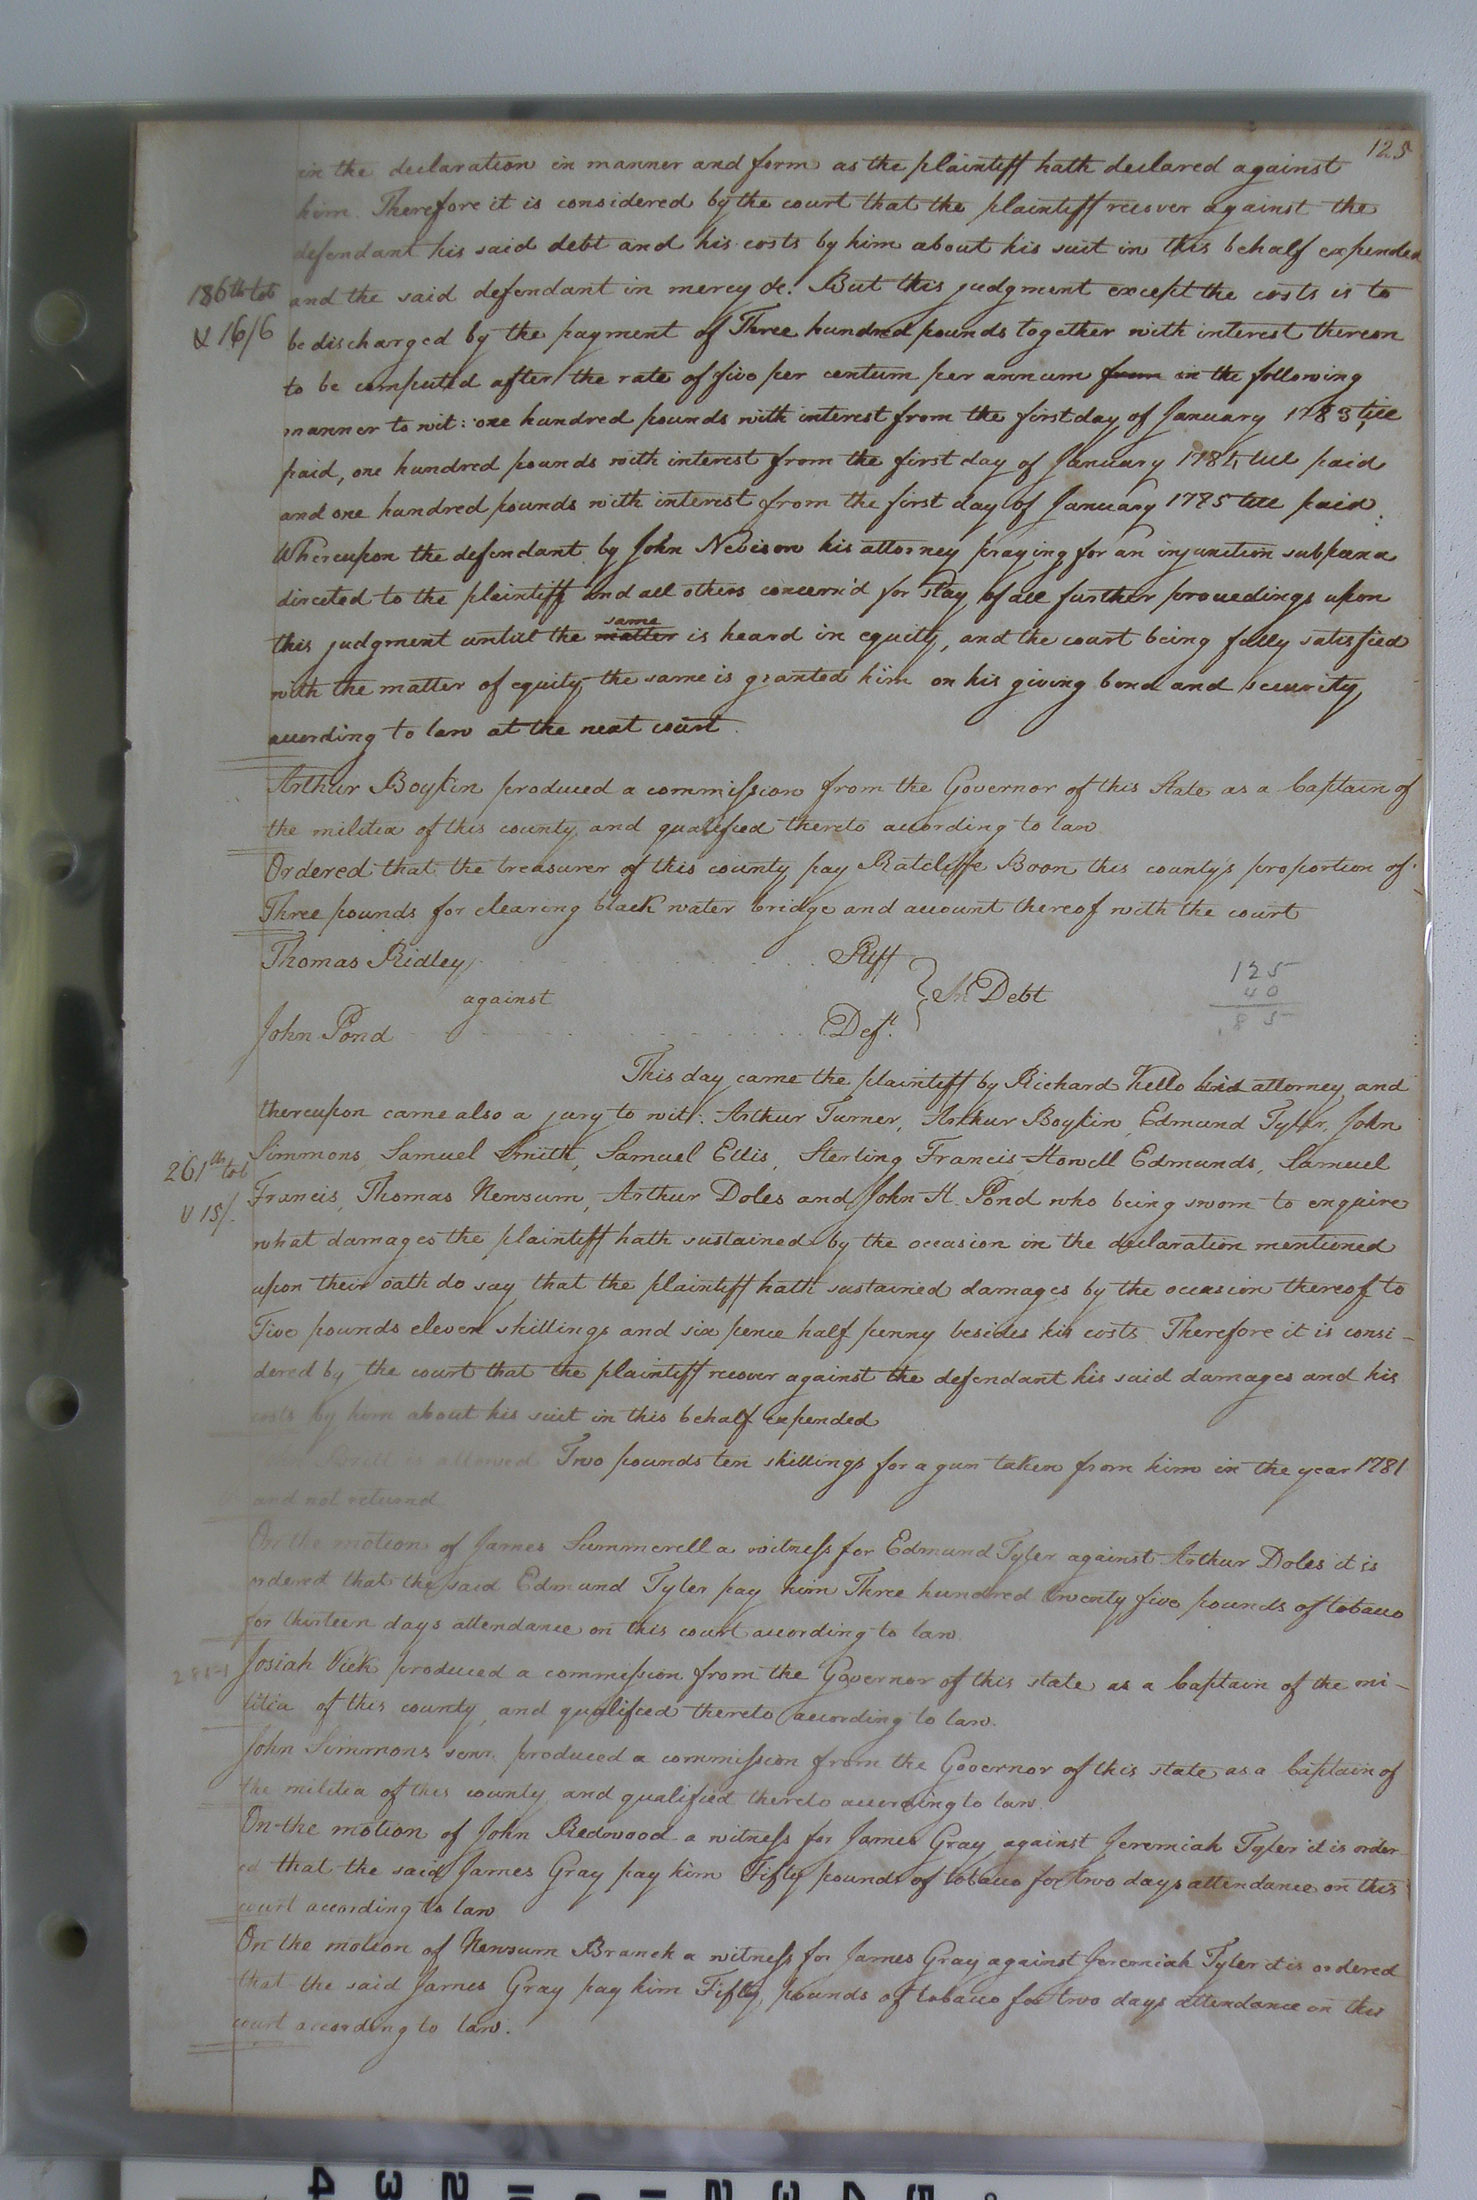 125
in the declaration in manner and form as the plaintiff hath declared against
him. Therefore it is considered by the court that the plaintiff recover against the
defendant his said debt and his costs by him about his suit in this behalf expended
186 lb tob
and the said defendant in mercy &c. But this judgment except the costs is to
& 16/6
be discharged by the payment of Three hundred pounds together with interest thereon
to be computed after the rate of five per centum per annum from in the following
manner to wit: one hundred pounds with interest from the first day of January 1783 till
paid, one hundred pounds with interest from the first day of January 1784 till paid
and one hundred pounds with interest from the first day of January 1785 till paid.
Whereupon the defendant by John Nevison his attorney praying for an injunction subpœna
directed to the plaintiff and all others concern'd for stay of all further proceedings upon
same
this judgment untill the matter is heard in equity, and the court being fully satisfied
with the matter of equity the same is granted him on his giving bond and security
according to law at the next court.
Arthur Boykin produced a commission from the Governor of this State as a Captain of
the militia of this county and qualified thereto according to law
Ordered that the treasurer of this county pay Ratcliffe Boon this county's proportion of
Three pounds for clearing black water bridge and account thereof with the court
Thomas Ridley Plff
against } In Debt
John Pond Deft.
125
40
85
This day came the plaintiff by Richard Kello his attorney and
thereupon came also a jury to wit: Arthur Turner, Arthur Boykin, Edmund Tyler, John
261 lb tob
Simmons, Samuel Smith, Samuel Ellis, Sterling Francis, Howell Edmunds, Samuel
& 15/.
Francis, Thomas Newsum, Arthur Doles and John H. Pond who being sworn to enquire
what damages the plaintiff hath sustained by the occasion in the declaration mentioned
upon their oath do say that the plaintiff hath sustained damages by the occasion thereof to
Five pounds eleven shillings and six pence half penny besides his costs Therefore it is consi-
dered by the court that the plaintiff recover against the defendant his said damages and his
costs by him about his suit in this behalf expended
is allowed Two pounds ten shillings for a gun taken from him in the year 1781
and not returnd
On the motion of James Summerell a witness for Edmund Tyler against Arthur Doles it is
ordered that the said Edmund Tyler pay him Three hundred twenty five pounds of tobacco
for thirteen days attendance on this court according to law.
Josiah Vick produced a commission from the Governor of this state as a Captain of the mi-
litia of this county, and qualified thereto according to law.
John Simmons senr. produced a commission from the Governor of this state as a Captain of
the militia of this county and qualified thereto according to law.
On the motion of John Redwood a witness for James Gray against Jeremiah Tyler it is order
ed that the said James Gray pay him Fifty pounds of tobacco for two days attendance on this
court according to law
On the motion of Newsum Branch a witness for James Gray against Jeremiah Tyler it is ordered
that the said James Gray pay him Fifty pounds of tobacco for two days attendance on this
court according to law.